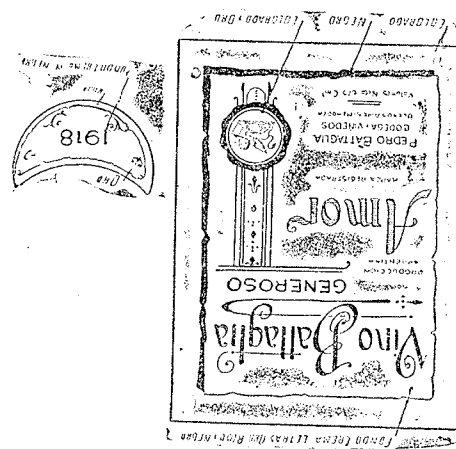 FONDO CREMA LETRAS ORO ROJO Y NEGRO
Vino Battaglia
GENEROSO
PRODUCCION
ARGENTINA
Amor
MARCA REGISTRADA
PEDRO BATTAGLIA
BODEGA Y VIÑEDOS
COLORADO
NEGRO
COLORADO Y ORO
ORO
1918